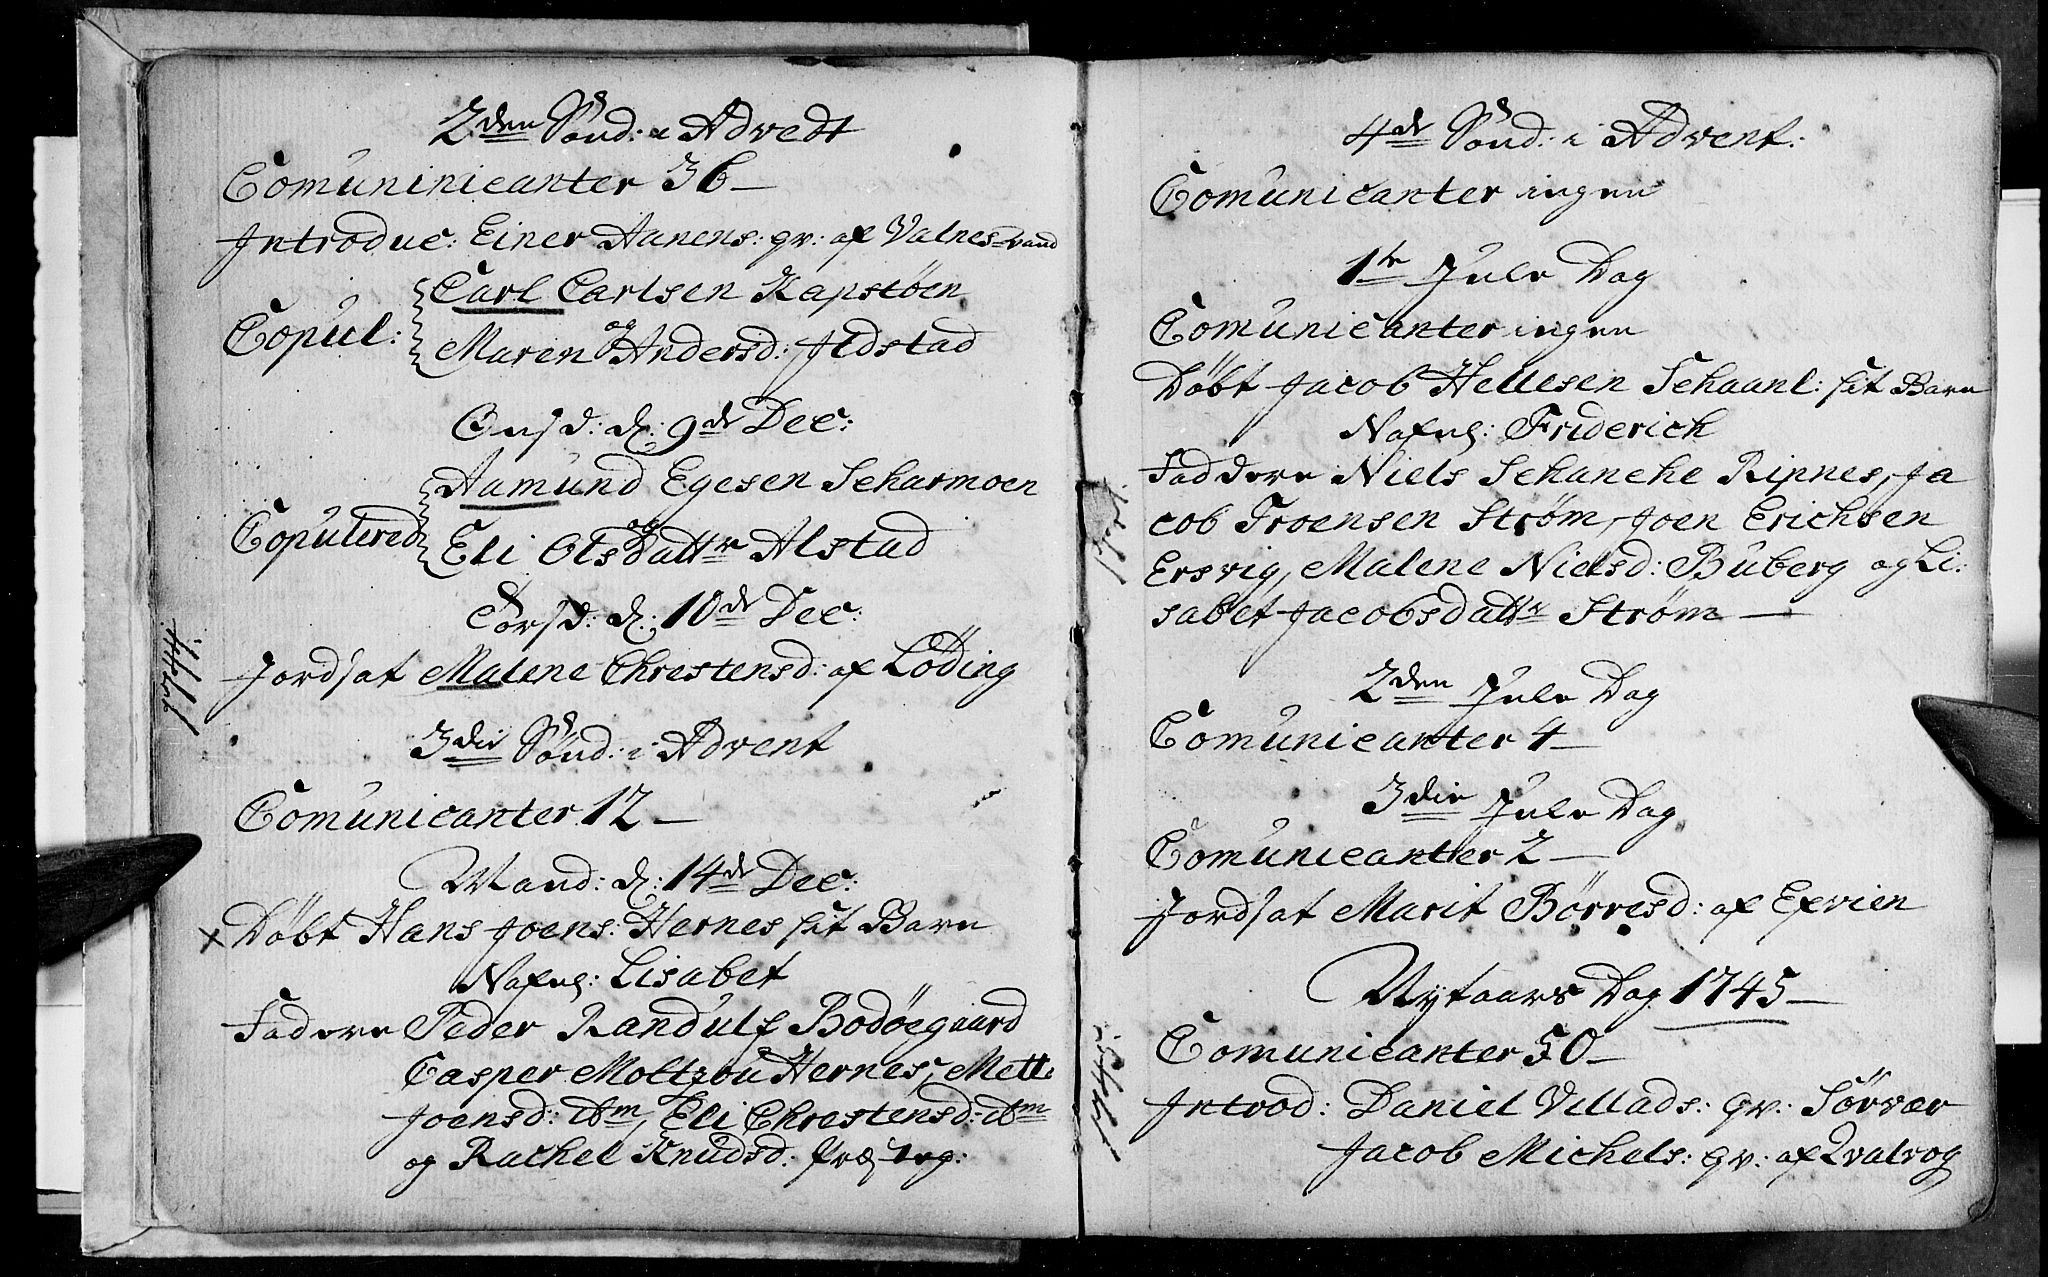 2den Sønd: i Advedt
Comuninicanter 36 —
Introduc: Einer Aanens: qv: af Valnesvand
Carl Carlsen Kapstøen
Copul: og
Maren Andersd: Ildstad
Onsd: d: 9de Dec:
Aamund Egesen Scharmoen
Copulered og
Eli Olsdattr Alstad
Torsd: d: 10de Dec:
1744.
Jordsat Malene Chrestensd: af Løding
3die Sønd: i Advent
Comunicanter 12 —
Mand: d: 14de Dec:
x Døbt Hans Joens: Hernes sit Barn
Nafnl: Lisabet
Fadere Peder Randulf Bodøegaard
Casper Moltzou Hernes, Mette
Joensd: ibm, Eli Chrestensd: ibm
og Rachel Knudsd:
4de Sønd: i Advent:
Comunicanter ingen
1te Jule Dag
Comunicanter ingen
Døbt Jacob Hellesen Schaanl: sit Barn
Nafnl: Friderich
Faddere Niels Schancke Ripnes, Ja
cob Troensen Strøm, Joen Erichsen
Ersvig, Malene Nielsd: Buberg og Li:
sabet Jacobsdattr Strøm —
2den Jule Dag
Comunicanter 4 —
3die Jule Dag
Comunicanter 2 —
Jordsat Marit Børresd: af Eevien
Nytaars Dag 1745 —
1745.
Comunicanter 50 —
Introd: Daniel Villads: qv: Sørvær
Jacob Michels: qv: af Qvalvog